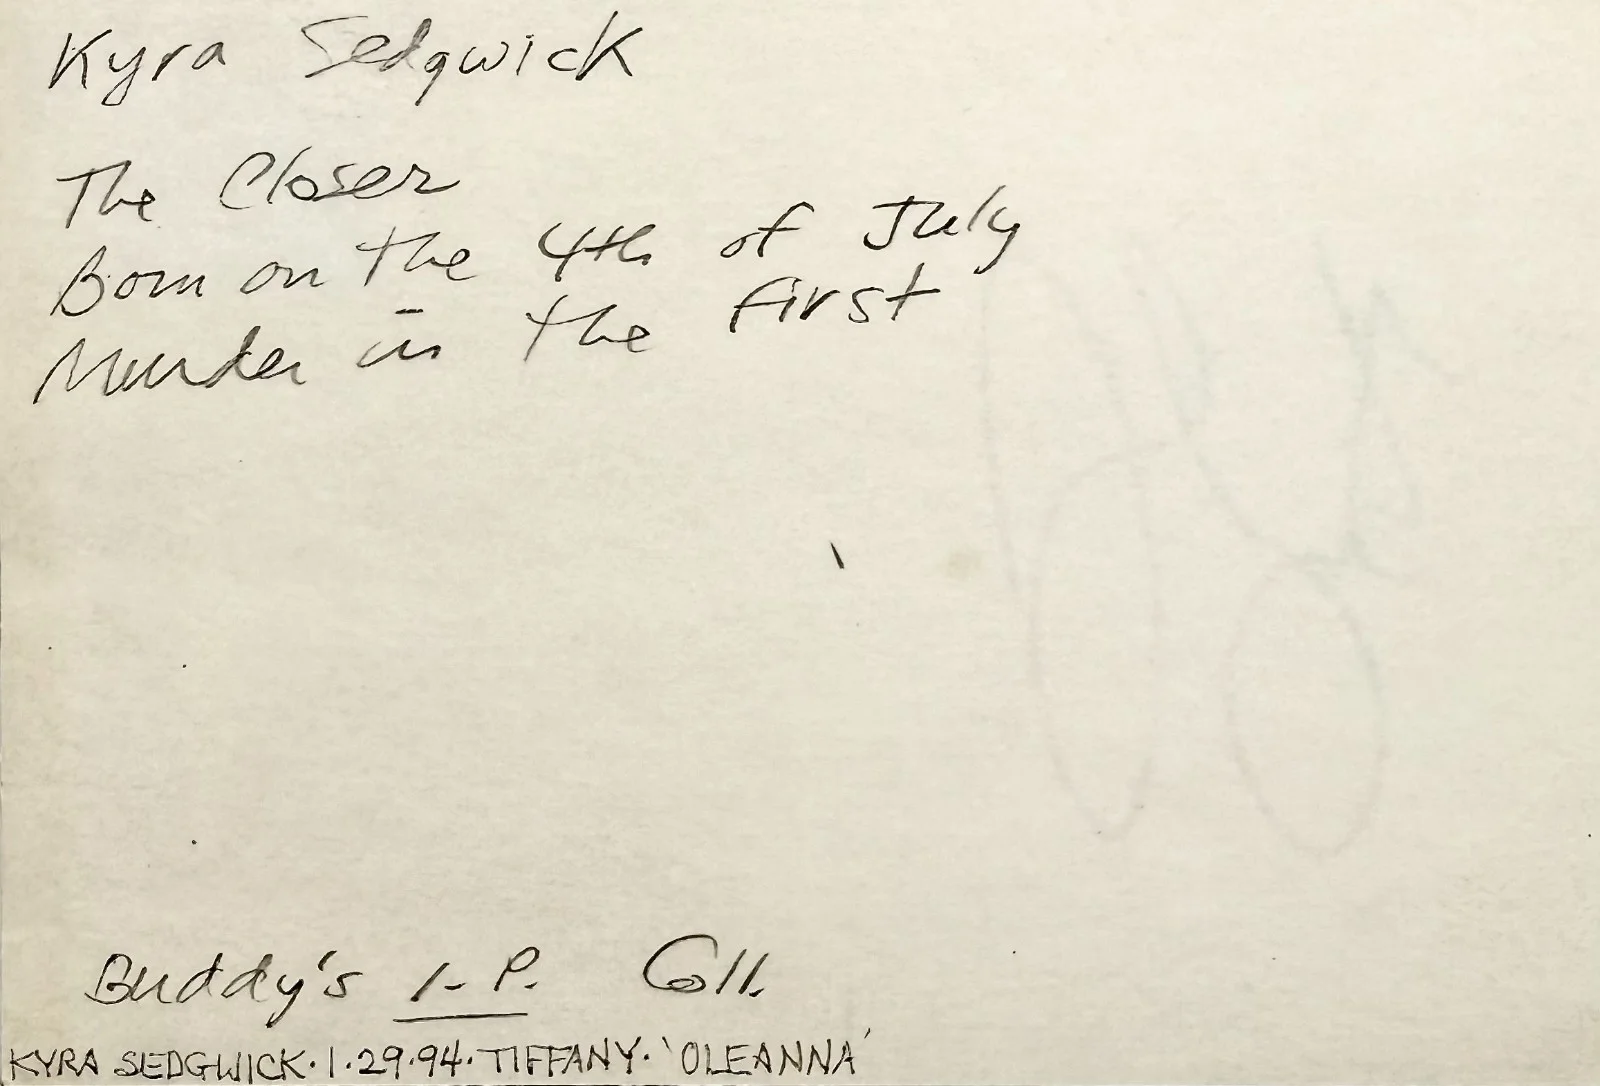 Kyra Sedgwick
The Closer
Born on the 4th of July
Murder in the First
Buddy's I.P. Coll.
KYRA SEDGWICK·1·29·94·TIFFANY·'OLEANNA'